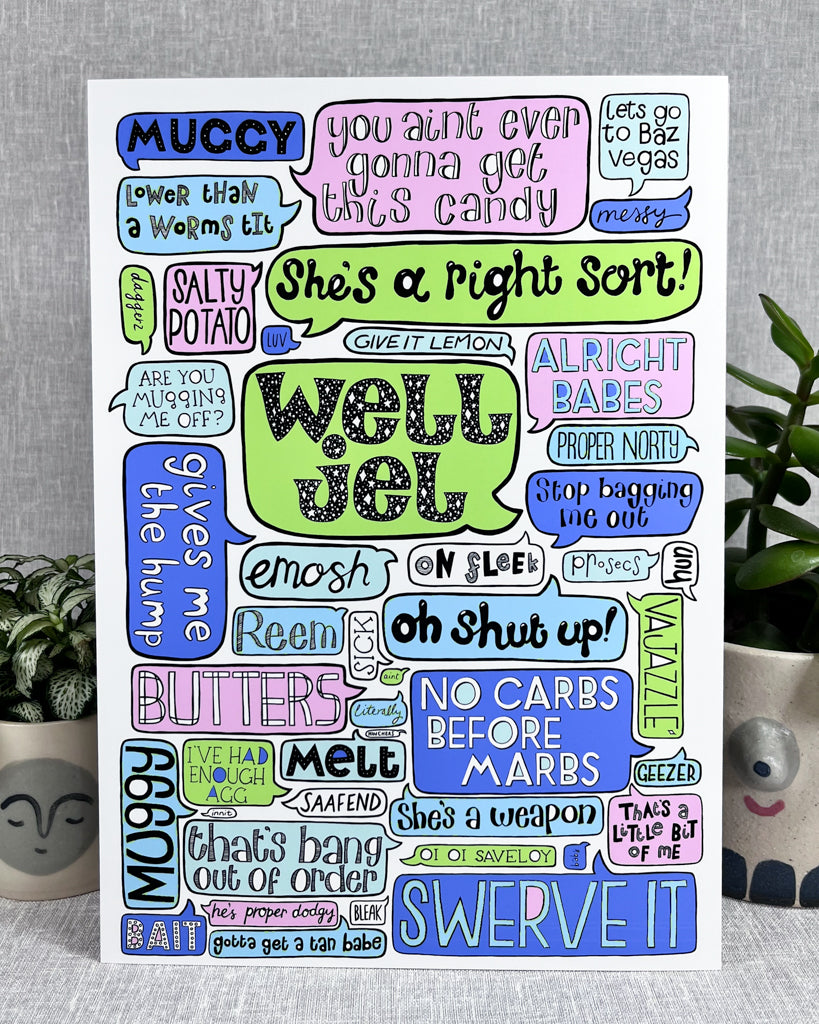 MUGGY
you aint ever
gonna get
this candy
lets go
to Baz
vegas
Lower than
a worms tit
messy
She's a right sort!
daggerz
SALTY
POTATO
LUV
GIVE IT LEMON
ALRIGHT
BABES
ARE YOU
MUGGING
ME OFF?
well
jel
PROPER NORTY
Stop bagging
me out
gives me
the hump
emosh
ON FLEEK
prosecs
hun
Reem
SICK
oh shut up!
VAJAZZLE
BUTTERS
aint
literally
NO CARBS
BEFORE
MARBS
MUGGY
I'VE HAD
ENOUGH
AGG
MELT
GEEZER
innit
SAAFEND
She's a weapon
THAT'S A
LITTLE BIT
OF ME
that's bang
out of order
OI OI SAVELOY
baby
SWERVE IT
he's proper dodgy
BLEAK
BAIT
gotta get a tan babe